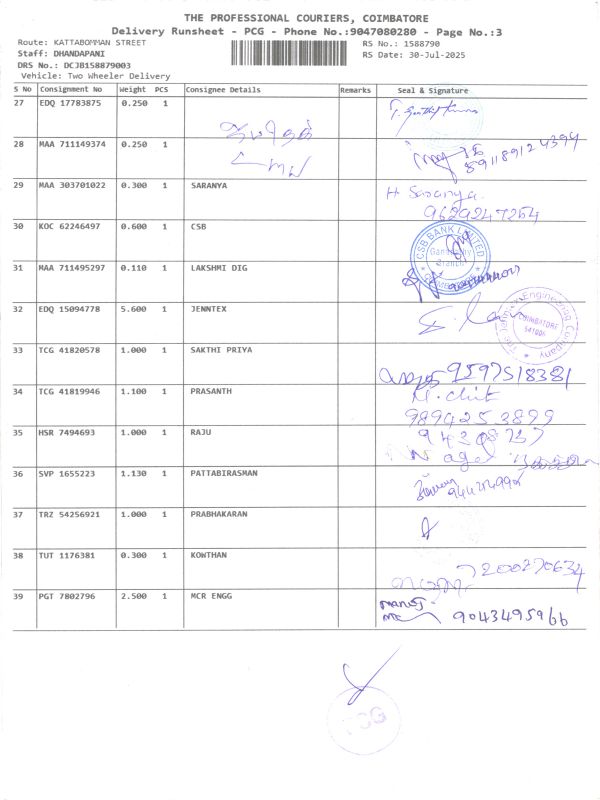 THE PROFESSIONAL COURIERS, COIMBATORE
Delivery Runsheet - PCG - Phone No.:9047080280 - Page No.:3
Route: KATTABOMMAN STREET
RS No.: 1588790
Staff: DHANDAPANI
RS Date: 30-Jul-2025
DRS No.: DCJB158879003
Vehicle: Two Wheeler Delivery
S No Consignment No Weight PCS Consignee Details Remarks Seal & Signature
27 EDQ 17783875 0.250 1
28 MAA 711149374 0.250 1
29 MAA 303701022 0.300 1 SARANYA H Saranya
9629247254
30 KOC 62246497 0.600 1 CSB CSB BANK LIMITED
31 MAA 711495297 0.110 1 LAKSHMI DIG
32 EDQ 15094778 5.600 1 JENNTEX COIMBATORE
33 TCG 41820578 1.000 1 SAKTHI PRIYA 9597518381
34 TCG 41819946 1.100 1 PRASANTH
9894253899
35 HSR 7494693 1.000 1 RAJU
36 SVP 1655223 1.130 1 PATTABIRASMAN
37 TRZ 54256921 1.000 1 PRABHAKARAN
38 TUT 1176381 0.300 1 KOWTHAN 7200270634
39 PGT 7802796 2.500 1 MCR ENGG 9043495966
PCG